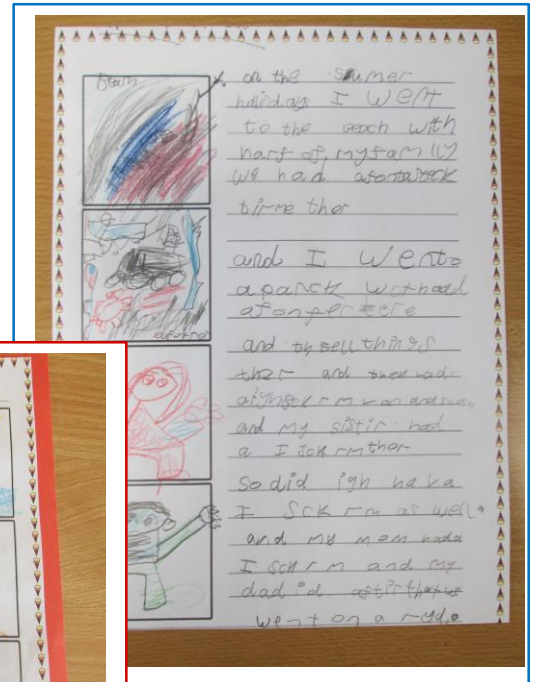 on the sumer
holidays I went
to the beach with
harf of my famlly
We had afontastck
time ther
and I Wento
aparck
and thsell things
ther and
and my sistir had
a I sck rm ther
So did igh hava
I Sck rm as well.
and my mom hada
I sckrm and my
dad id
went on a ryde